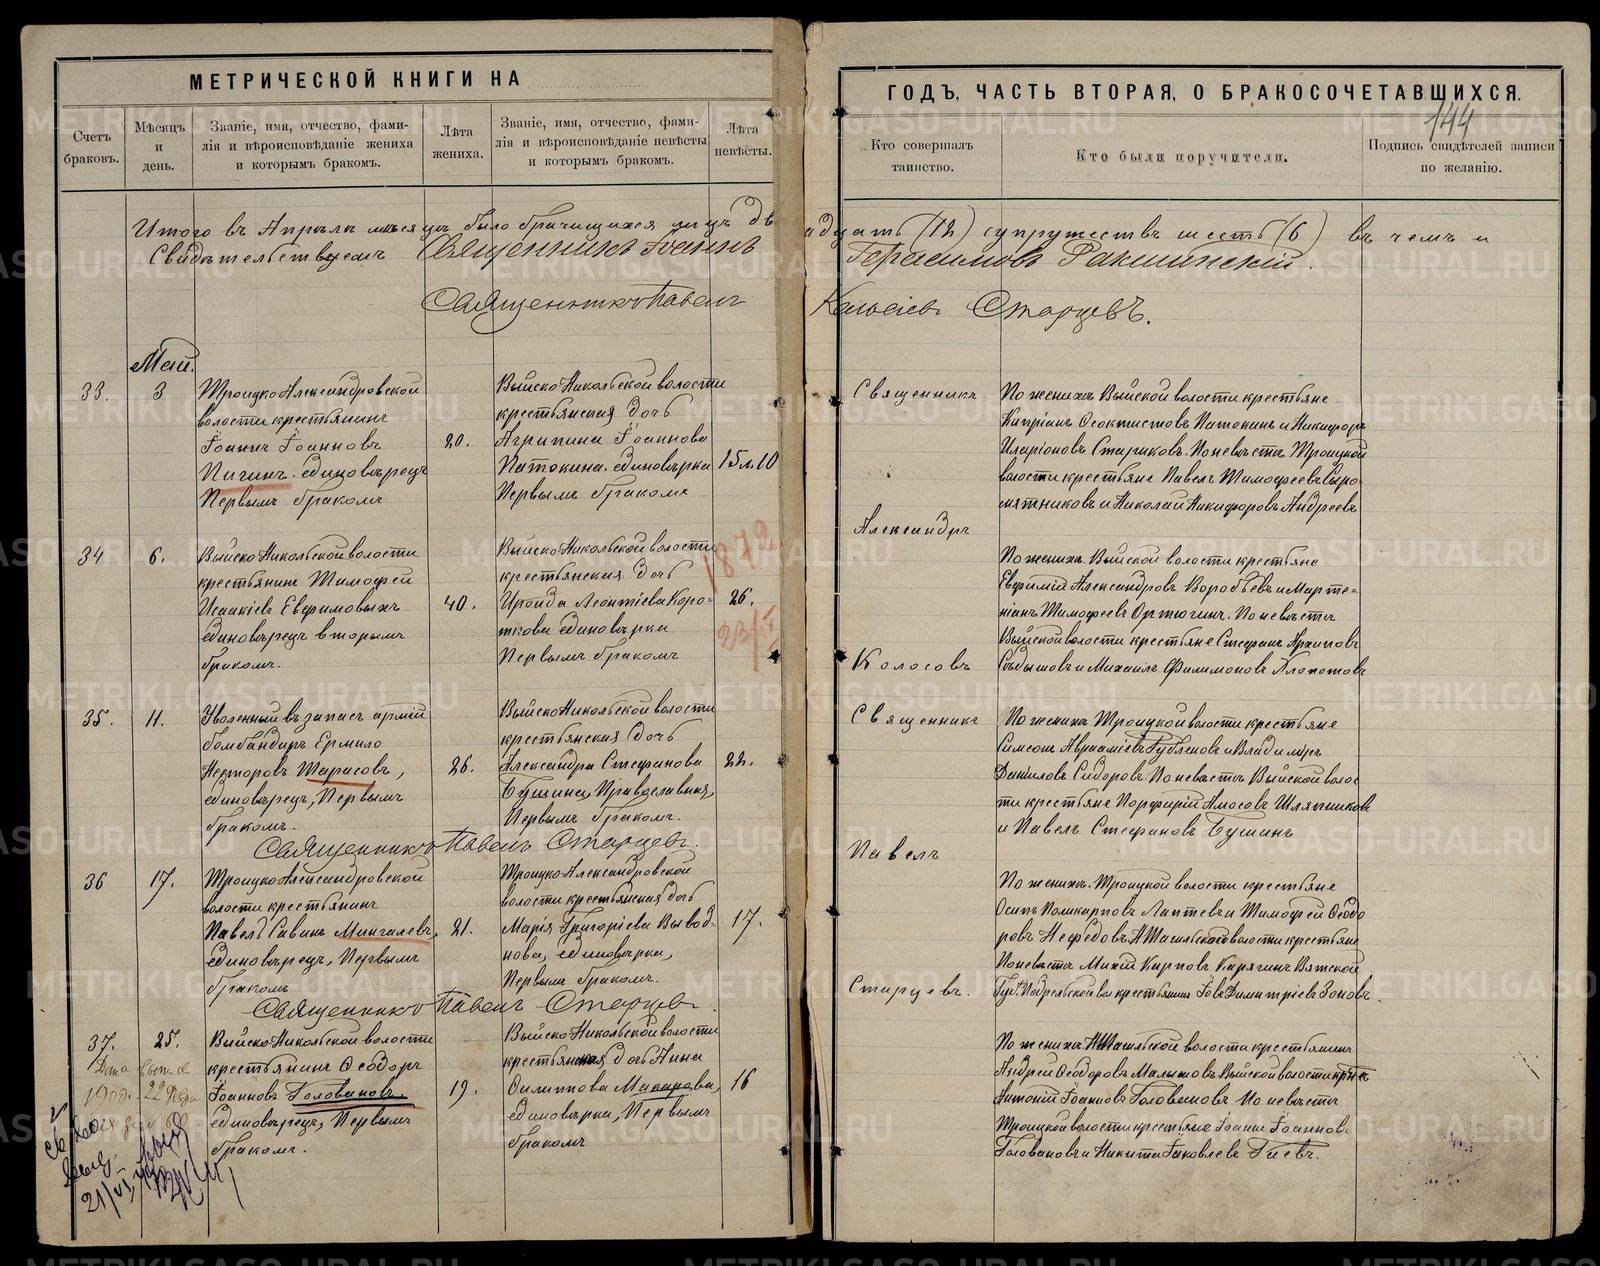 МЕТРИЧЕСКОЙ КНИГИ НА
ГОДЪ, ЧАСТЬ ВТОРАЯ, О БРАКОСОЧЕТАВШИХСЯ.
144
Счетъ браковъ.
Мѣсяцъ и день.
Званіе, имя, отчество, фами-
лія и вѣроисповѣданіе жениха
и которымъ бракомъ.
Лѣта жениха.
Званіе, имя, отчество, фами-
лія и вѣроисповѣданіе невѣсты
и которымъ бракомъ.
Лѣта невѣсты.
Кто совершалъ таинство.
Кто были поручители.
Подпись свидѣтелей записи
по желанію.
Итого въ Апрѣлѣ мѣсяцѣ было брачущихся лицъ двѣнадцать (12) супружествъ шесть (6) въ чемъ и
Свидѣтельствуемъ Священникъ Іоаннъ Герасимовъ Ракшинскій.
Священникъ Павелъ Старцевъ.
Май.
33.
3
Троицко-Александровской
волости крестьянинъ
Іоаннъ Іоанновъ
Пигинъ. единовѣрецъ
Первымъ бракомъ
20.
Выйско-Никольской волости
крестьянская дочь
Агрипина Іоаннова
Патокина. единовѣрка
Первымъ бракомъ
15 л. 10
Священникъ
Александръ
По женихѣ Выйской волости крестьяне
Кипріанъ Ѳеоктистовъ Патокинъ и Никифоръ
Иларіоновъ Стариковъ. По невѣстѣ Троицкой
волости крестьяне Павелъ Тимофеевъ Сыро-
мятниковъ и Николай Никифоровъ Андреевъ
34
6.
Выйско-Никольской волости
крестьянинъ Тимофей
Исаакіевъ Евфимовыхъ
единовѣрецъ вторымъ
бракомъ.
40.
Выйско-Никольской волости
крестьянская дочь
Ираида Леонтіева Коро-
ткова единовѣрка
Первымъ бракомъ
26.
1872
Колосовъ
По женихѣ Выйской волости крестьяне
Евфимій Александровъ Воробьевъ и Марте-
ніанъ Тимофеевъ Ортюгинъ. По невѣстѣ
Выйской волости крестьяне Стефанъ Архиповъ
и Михаилъ Филимоновъ
35.
11.
Уволенный въ запасъ арміи
бомбандиръ Ермило
Несторовъ Тарасовъ,
единовѣрецъ, Первымъ
бракомъ.
26.
Выйско-Никольской волости
крестьянская дочь
Александра Стефанова
Бушина, Православная,
Первымъ бракомъ.
22.
Священникъ Павелъ Старцевъ.
Священникъ
Павелъ
По женихѣ Троицкой волости крестьяне
Симеонъ Авраамовъ и Владиміръ
Даниловъ Сидоровъ. По невѣстѣ Выйской волос-
ти крестьяне Порфирій Амосовъ Шляпниковъ
и Павелъ Стефановъ Бушинъ
36
17.
Троицко-Александровской
волости крестьянинъ
Павелъ Савинъ Мингалевъ,
единовѣрецъ, Первымъ
бракомъ
21.
Троицко-Александровской
волости крестьянская дочь
Марія Григоріева Вывод-
нова, единовѣрка,
Первымъ бракомъ.
17.
Священникъ Павелъ Старцевъ
Старцевъ.
По женихѣ. Троицкой волости крестьяне
Осипъ Поликарповъ Лаптевъ и Тимофей Ѳеодо-
ровъ Нефедовъ. Н Тагильской волости крестьяне
По невѣстѣ Михей Карповъ Карягинъ Вятской
Губ. вол крестьянинъ Іовъ Димитріевъ Зоновъ.
37.
25.
Выйско-Никольской волости
крестьянинъ Ѳеодоръ
Іоанновъ Головановъ.
единовѣрецъ, Первымъ
бракомъ.
19.
Выйско-Никольской волости
крестьянская дочь Анна
Филиппова Макарова,
единовѣрка, Первымъ
бракомъ
16
По женихѣ Н Тагильской волости крестьянинъ
Андрей Ѳеодоровъ Малышовъ Выйской волости
Антоній Іоанновъ Головановъ По невѣстѣ
Троицкой волости крестьяне Іоаннъ Іоанновъ
Головановъ и Никита Іаковлевъ Гаевъ.
METRIKI.GASO-URAL.RU